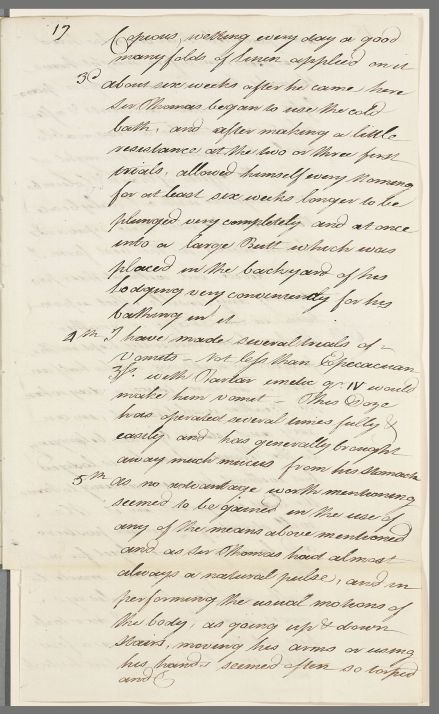 17
Copious, wetting every day a good
many folds of linen applied on it
3d about six weeks after he came here
Sir Thomas began to use the cold
bath, and after making a little
resistance at the two or three first
trials, allowed himself every Morning
for at least six weeks longer to be
plunged very completely and at once
into a large Butt which was
placed in the backyard of his
Lodging very conveniently for his
bathing in it
4th I have made several trials of
Vomits – not less than Epecacuan
with Tartar emetic gr IV would
make him vomit – This Doze
has operated several times fully &
easily and has generally brought
away much mucus from his Stomach
5th as no advantage worth mentioning
seemed to be gained in the use of
any of the means above mentioned
and as Sir Thomas had almost
always a natural pulse, and in
performing the usual motions of
the body, as going up & down
Stairs, moving his arms or using
his hands seemed often so torpid
and